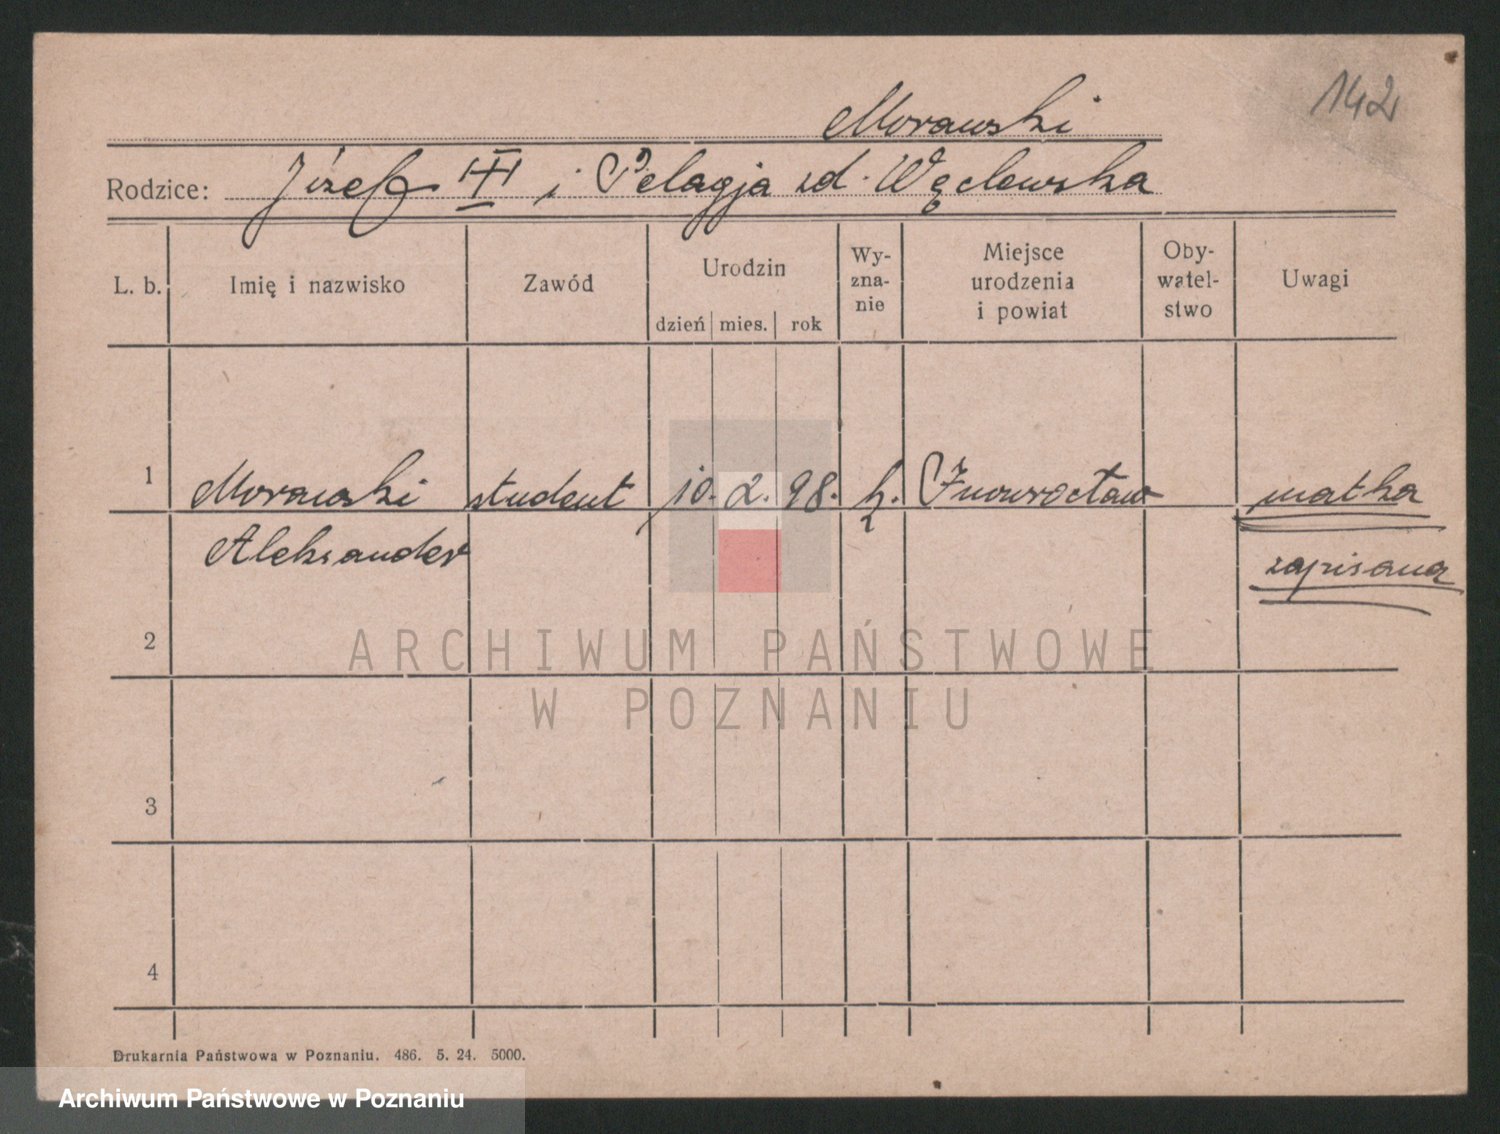 142
Morawski
Rodzice: Józef III i Pelagja zd. Węclewska
L. b. Imię i nazwisko Zawód Urodzin Wy-zna-nie Miejsce urodzenia i powiat Oby-watel-stwo Uwagi
dzień mies. rok
1 Morawski student 10. 2. 98. k. Inowrocław matka
Aleksander zapisana
2
ARCHIWUM PAŃSTWOWE
W POZNANIU
3
4
Drukarnia Państwowa w Poznaniu. 486. 5. 24. 5000.
Archiwum Państwowe w Poznaniu